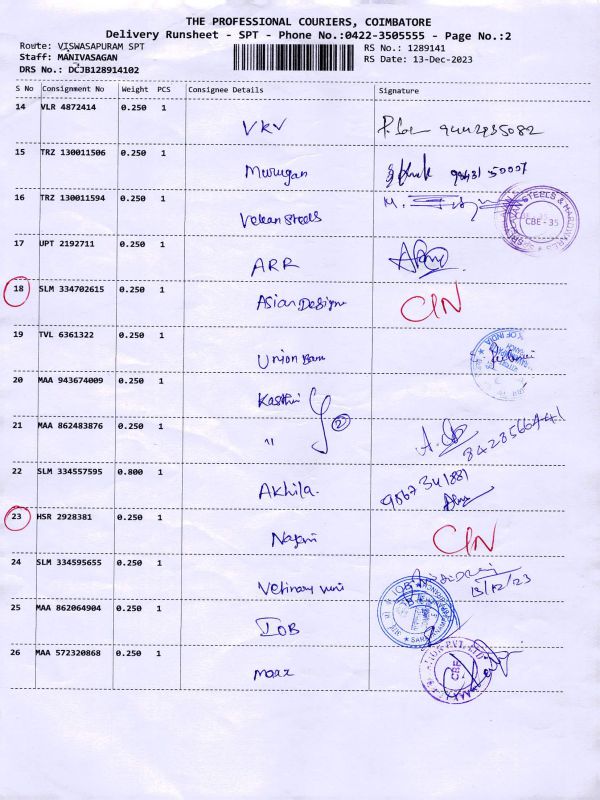 THE PROFESSIONAL COURIERS, COIMBATORE
Delivery Runsheet - SPT - Phone No.:0422-3505555 - Page No.:2
Route: VISWASAPURAM SPT RS No.: 1289141
Staff: MANIVASAGAN RS Date: 13-Dec-2023
DRS No.: DCJB128914102
S No Consignment No Weight PCS Consignee Details Signature
14 VLR 4872414 0.250 1
VKV 9442935082
15 TRZ 130011506 0.250 1
Murugan 98431 50007
16 TRZ 130011594 0.250 1
M.
Velean Steels CBE - 35
17 UPT 2192711 0.250 1
ARR
18 SLM 334702615 0.250 1
Asian Designe CIN
19 TVL 6361322 0.250 1
Union Bank
20 MAA 943674009 0.250 1
Kasthuri
2
21 MAA 862483876 0.250 1
" 8428566441
22 SLM 334557595 0.800 1
Akhila. 9567 341881
23 HSR 2928381 0.250 1
CIN
24 SLM 334595655 0.250 1
Vetinary 13/12/23
25 MAA 862064904 0.250 1
IOB
26 MAA 572320868 0.250 1
maax CBE